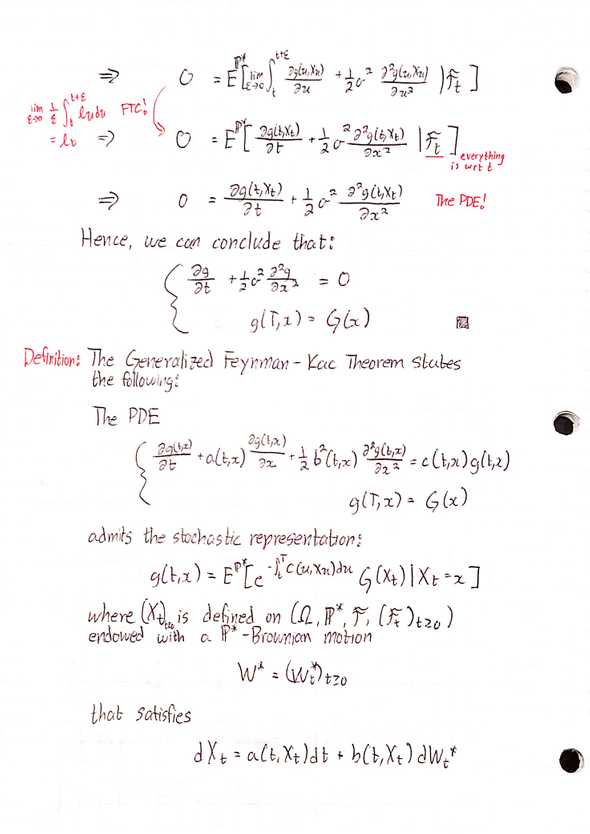 ⇒ 0 = E^{P*}[ lim_{ε→0} ∫_t^{t+ε} ∂g(u,Xu)/∂u + 1/2 σ² ∂²g(u,Xu)/∂u² | F_t ]
lim_{ε→0} 1/ε ∫_t^{t+ε} lu du FTC!
= lt ⇒ 0 = E^{P*}[ ∂g(t,Xt)/∂t + 1/2 σ² ∂²g(t,Xt)/∂x² | F_t ] everything
is wrt t
⇒ 0 = ∂g(t,Xt)/∂t + 1/2 σ² ∂²g(t,Xt)/∂x² The PDE!
Hence, we can conclude that:
{ ∂g/∂t + 1/2 σ² ∂²g/∂x² = 0
g(T,x) = G(x)
Definition: The Generalized Feynman-Kac Theorem states
the following:
The PDE
{ ∂g(t,x)/∂t + a(t,x) ∂g(t,x)/∂x + 1/2 b²(t,x) ∂²g(t,x)/∂x² = c(t,x)g(t,x)
g(T,x) = G(x)
admits the stochastic representation:
g(t,x) = E^{P*}[e^{-∫_t^T c(u,Xu)du} G(Xt) | Xt = x]
where (Xt)_{t≥0} is defined on (Ω, P*, F, (F_t)_{t≥0})
endowed with a P*-Brownian motion
W* = (Wt*)_{t≥0}
that satisfies
dXt = a(t,Xt)dt + b(t,Xt)dWt*